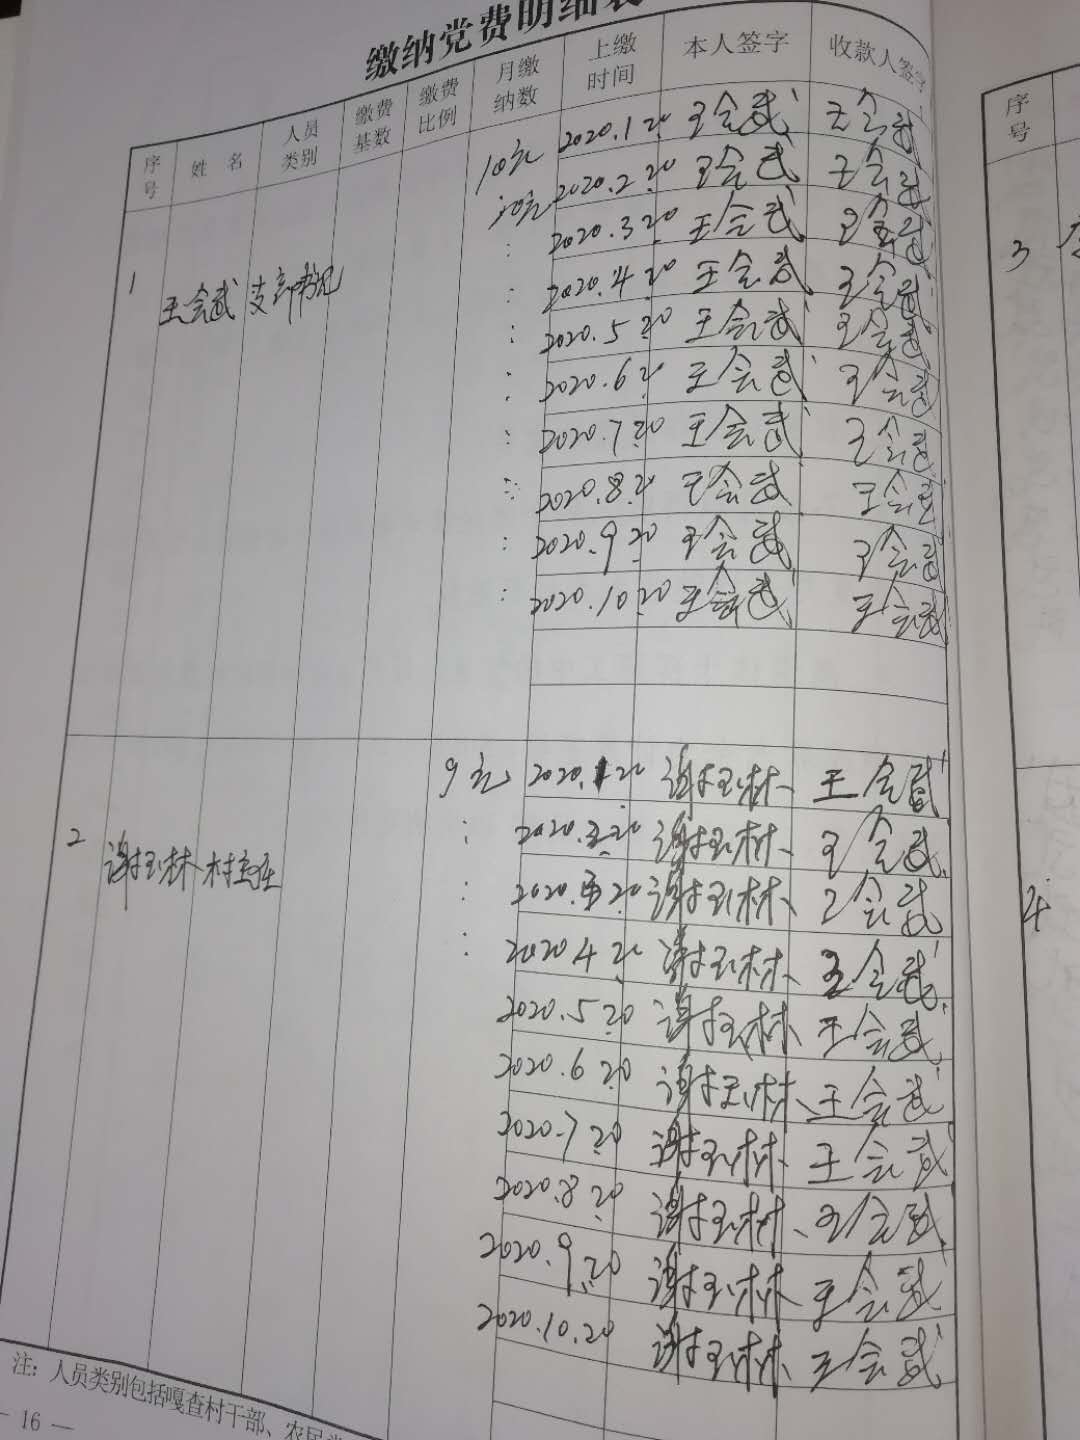 缴纳党费明细表
序号 姓 名 人员类别 缴费基数 缴费比例 月缴纳数 上缴时间 本人签字 收款人签字
1 王会武 支部书记 10元 2020.1.20 王会武 王会武
10元 2020.2.20 王会武 王会武
: 2020.3.20 王会武 王会武
: 2020.4.20 王会武 王会武
: 2020.5.20 王会武 王会武
: 2020.6.20 王会武 王会武
: 2020.7.20 王会武 王会武
: 2020.8.20 王会武 王会武
: 2020.9.20 王会武 王会武
: 2020.10.20 王会武 王会武
2 谢玉林 村主任 9元 2020.1.20 谢玉林 王会武
: 2020.2.20 谢玉林 王会武
: 2020.3.20 谢玉林 王会武
: 2020.4.20 谢玉林 王会武
2020.5.20 谢玉林 王会武
2020.6.20 谢玉林 王会武
2020.7.20 谢玉林 王会武
2020.8.20 谢玉林 王会武
2020.9.20 谢玉林 王会武
2020.10.20 谢玉林 王会武
注：人员类别包括嘎查村干部、农民
— 16 —
序号
3
4